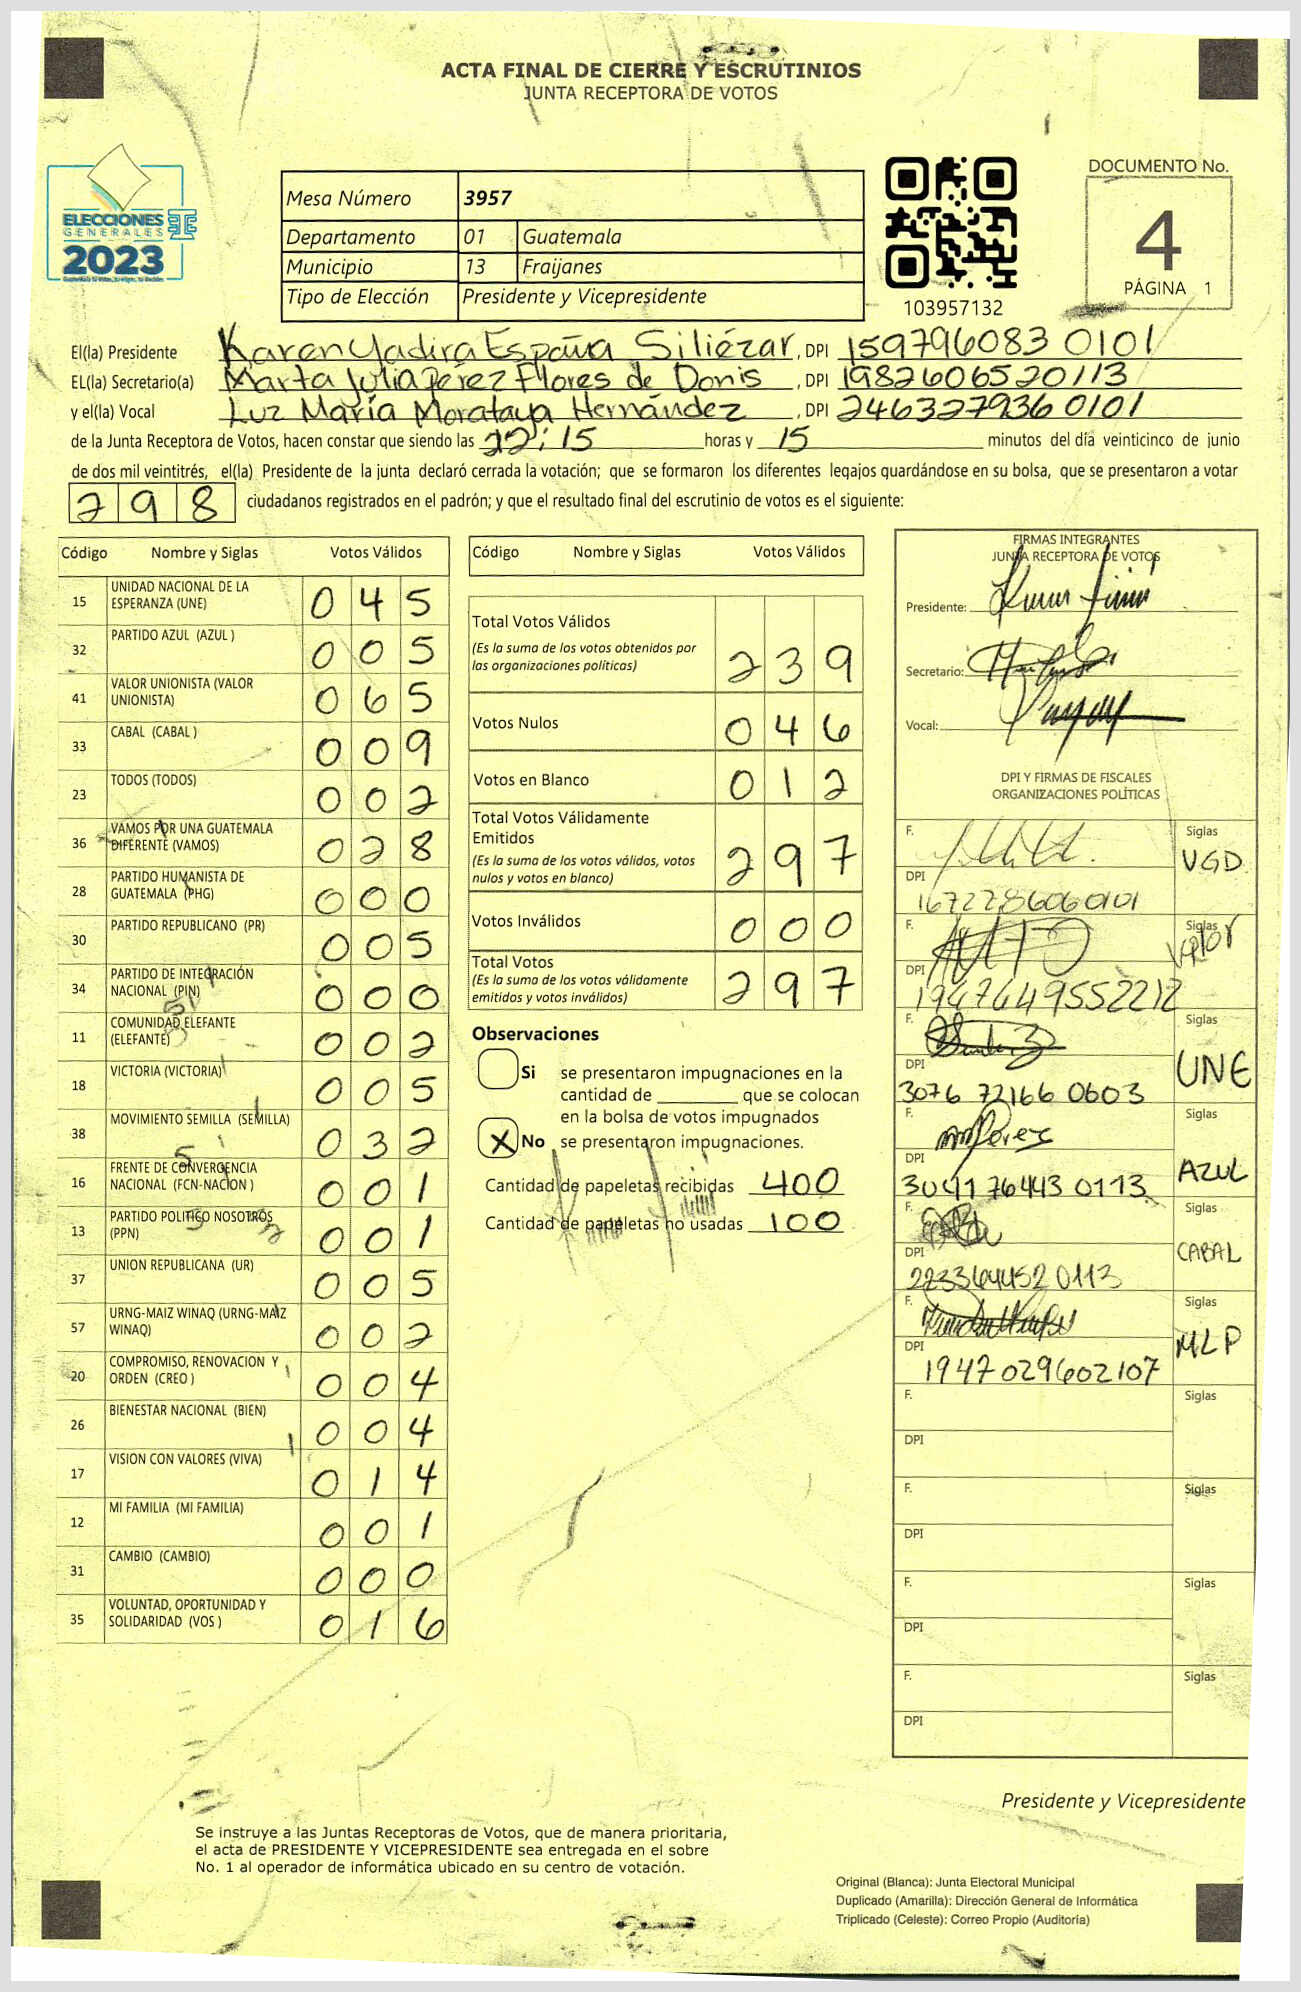 ACTA FINAL DE CIERRE Y ESCRUTINIOS
JUNTA RECEPTORA DE VOTOS
ELECCIONES
GENERALES
2023
Mesa Número 3957
Departamento 01 Guatemala
Municipio 13 Fraijanes
Tipo de Elección Presidente y Vicepresidente
103957132
DOCUMENTO No.
4
PÁGINA 1
El(la) Presidente Karen Yadira España Siliézar, DPI 159796083 0101
EL(la) Secretario(a) Marta Julia Pérez Flores de Donis, DPI 1982606520113
y el(la) Vocal Luz María Morataya Hernández, DPI 246327936 0101
de la Junta Receptora de Votos, hacen constar que siendo las 22:15 horas y 15 minutos del día veinticinco de junio
de dos mil veintitrés, el(la) Presidente de la junta declaró cerrada la votación; que se formaron los diferentes legajos guardándose en su bolsa, que se presentaron a votar
298 ciudadanos registrados en el padrón; y que el resultado final del escrutinio de votos es el siguiente:
Código Nombre y Siglas Votos Válidos
15 UNIDAD NACIONAL DE LA ESPERANZA (UNE) 045
32 PARTIDO AZUL (AZUL ) 005
41 VALOR UNIONISTA (VALOR UNIONISTA) 065
33 CABAL (CABAL ) 009
23 TODOS (TODOS) 002
36 VAMOS POR UNA GUATEMALA DIFERENTE (VAMOS) 028
28 PARTIDO HUMANISTA DE GUATEMALA (PHG) 000
30 PARTIDO REPUBLICANO (PR) 005
34 PARTIDO DE INTEGRACIÓN NACIONAL (PIN) 000
11 COMUNIDAD ELEFANTE (ELEFANTE) 002
18 VICTORIA (VICTORIA) 005
38 MOVIMIENTO SEMILLA (SEMILLA) 032
16 FRENTE DE CONVERGENCIA NACIONAL (FCN-NACION ) 001
13 PARTIDO POLITICO NOSOTROS (PPN) 001
37 UNION REPUBLICANA (UR) 005
57 URNG-MAIZ WINAQ (URNG-MAIZ WINAQ) 002
20 COMPROMISO, RENOVACION Y ORDEN (CREO ) 004
26 BIENESTAR NACIONAL (BIEN) 004
17 VISION CON VALORES (VIVA) 014
12 MI FAMILIA (MI FAMILIA) 001
31 CAMBIO (CAMBIO) 000
35 VOLUNTAD, OPORTUNIDAD Y SOLIDARIDAD (VOS ) 016
Código Nombre y Siglas Votos Válidos
Total Votos Válidos 239
(Es la suma de los votos obtenidos por
las organizaciones políticas)
Votos Nulos 046
Votos en Blanco 012
Total Votos Válidamente
Emitidos 297
(Es la suma de los votos válidos, votos
nulos y votos en blanco)
Votos Inválidos 000
Total Votos 297
(Es la suma de los votos válidamente
emitidos y votos inválidos)
Observaciones
Si se presentaron impugnaciones en la
cantidad de ________ que se colocan
en la bolsa de votos impugnados
X No se presentaron impugnaciones.
Cantidad de papeletas recibidas 400
Cantidad de papeletas no usadas 100
FIRMAS INTEGRANTES
JUNTA RECEPTORA DE VOTOS
Presidente:
Secretario:
Vocal:
DPI Y FIRMAS DE FISCALES
ORGANIZACIONES POLÍTICAS
F. Siglas VGD
DPI 1672278606 0101
F. Siglas Valor
DPI 1947649552212
F. Siglas UNE
DPI 3076 72166 0603
F. Siglas AZUL
DPI 3041 76443 0113
F. Siglas CABAL
DPI 223364452 0113
F. Siglas MLP
DPI 1947029602107
F. Siglas
DPI
F. Siglas
DPI
F. Siglas
DPI
F. Siglas
DPI
Presidente y Vicepresidente
Se instruye a las Juntas Receptoras de Votos, que de manera prioritaria,
el acta de PRESIDENTE Y VICEPRESIDENTE sea entregada en el sobre
No. 1 al operador de informática ubicado en su centro de votación.
Original (Blanca): Junta Electoral Municipal
Duplicado (Amarilla): Dirección General de Informática
Triplicado (Celeste): Correo Propio (Auditoría)